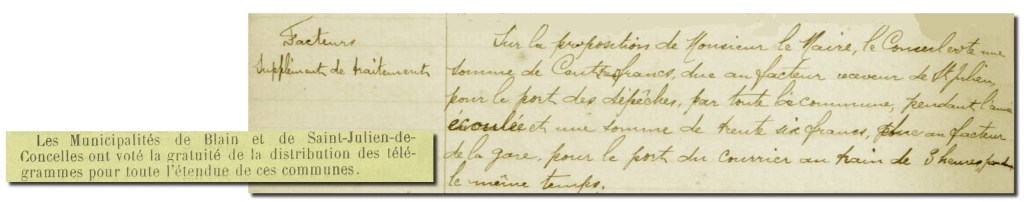 Facteurs
Supplément de traitement
Sur la proposition de Monsieur le Maire, le Conseil vote une
somme de Cent francs, due au facteur receveur de St Julien,
pour le port des dépêches, par toute la commune, pendant l'année
écoulée et une somme de trente six francs, due au facteur
de la gare, pour le port du courrier au train de 3 heures pendt
le même temps.
Les Municipalités de Blain et de Saint-Julien-de-
Concelles ont voté la gratuité de la distribution des télé-
grammes pour toute l'étendue de ces communes.